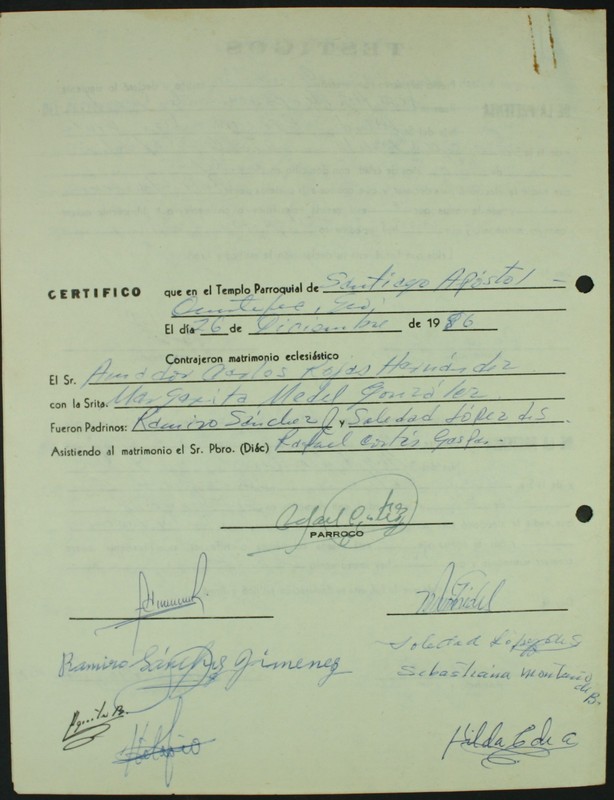 CERTIFICO que en el Templo Parroquial de Santiago Apóstol -
El día 26 de Diciembre de 1986
Contrajeron matrimonio eclesiástico
El Sr. Amador Carlos Rojas Hernández
con la Srita. Margarita Medel González
Fueron Padrinos: Ramiro Sánchez J. y Soledad López de S.
Asistiendo al matrimonio el Sr. Pbro. (Diác) Rafael Cortés Gaspar
PARROCO
Soledad López de S
Ramiro Sánchez Gimenez
Sebastiana Montaño
de B.